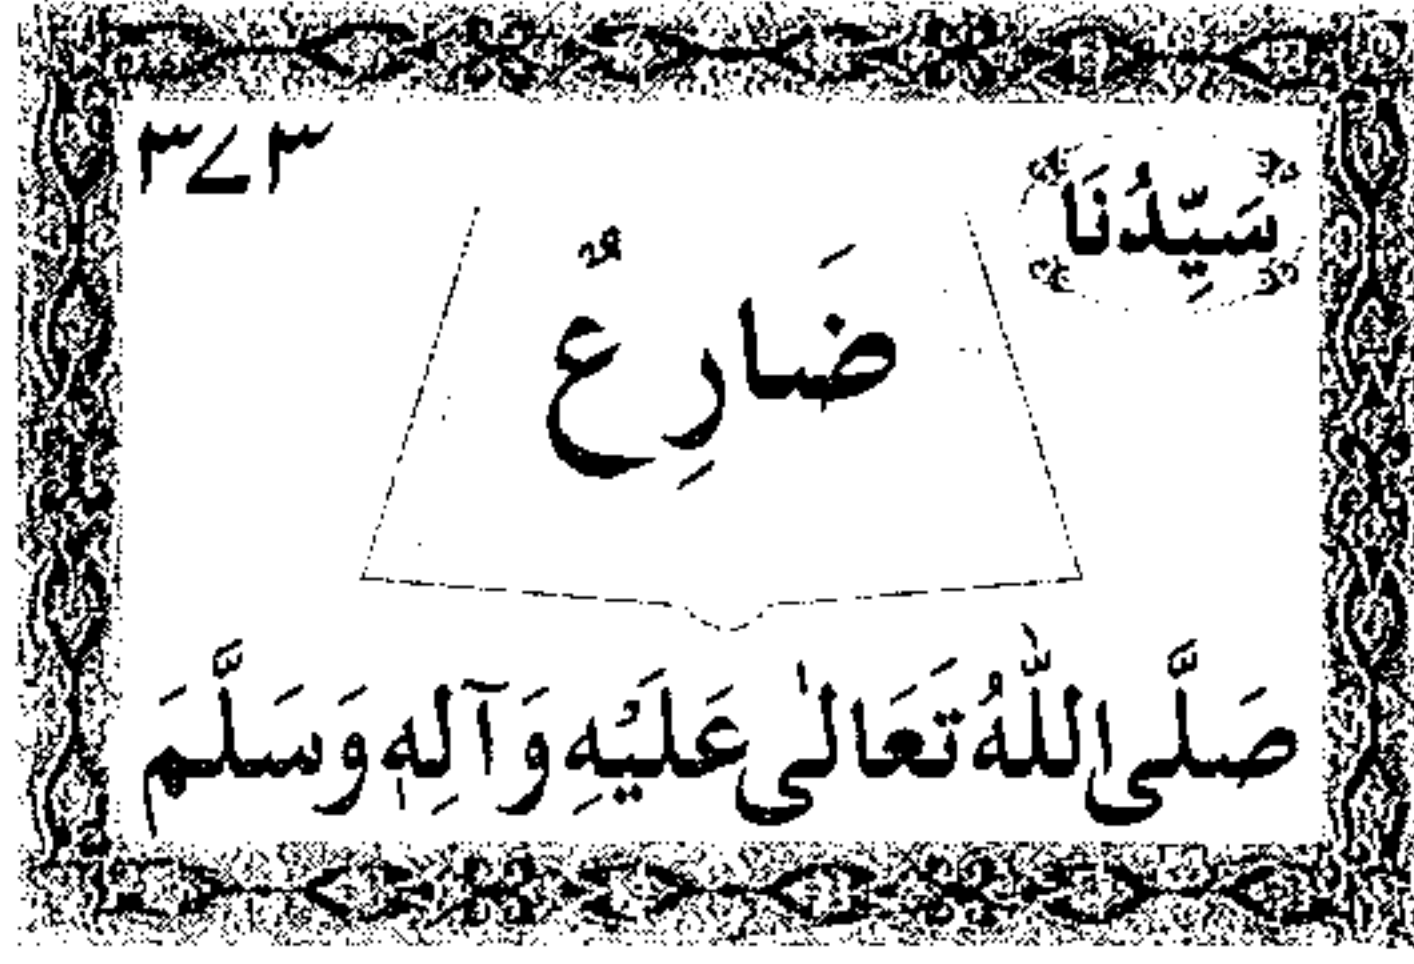 سَيِّدُنَا
۳۷۳
ضَارِعٌ
صَلَّى اللّٰهُ تَعَالٰى عَلَيْهِ وَآلِهٖ وَسَلَّمَ